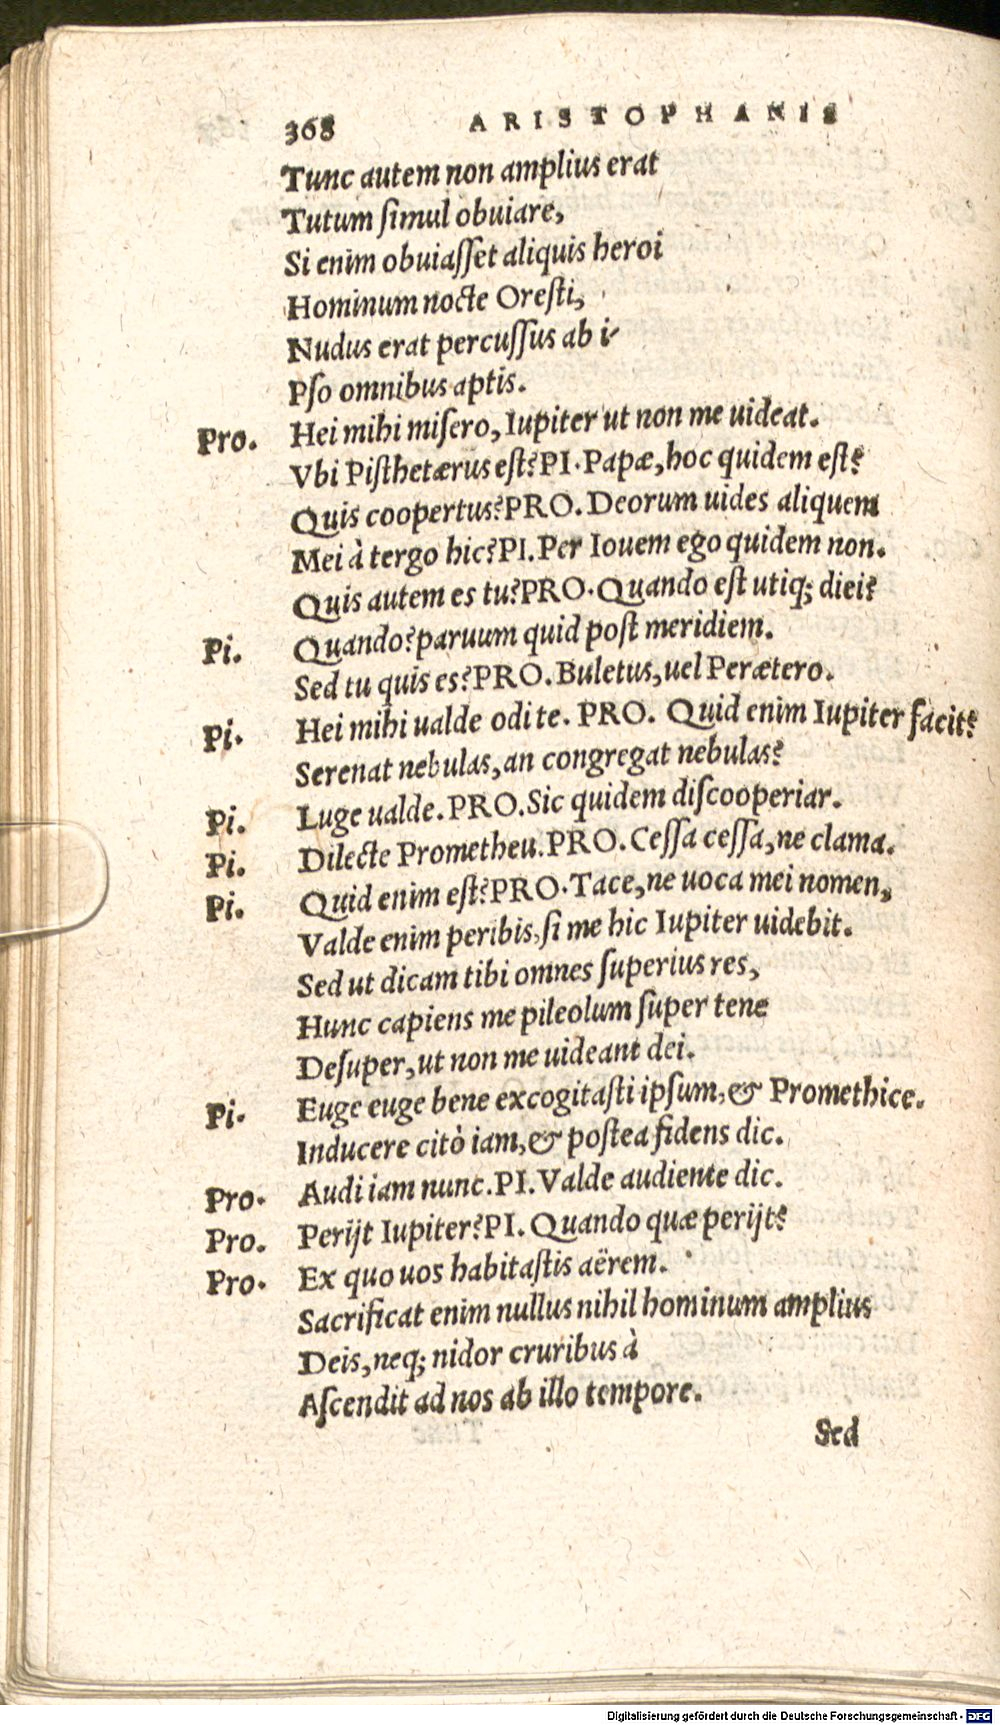 368 ARISTOPHANIS
Tunc autem non amplius erat
Tutum ſimul obuiare,
Si enim obuiaſſet aliquis heroi
Hominum nocte Oreſti,
Nudus erat percuſſus ab i-
Pſo omnibus aptis.
Pro. Hei mihi miſero, Iupiter ut non me uideat.
Vbi Piſthetærus eſt? PI. Papæ, hoc quidem eſt?
Quis coopertus? PRO. Deorum uides aliquem
Mei à tergo hic? PI. Per Iouem ego quidem non.
Quis autem es tu? PRO. Quando eſt utiq; diei?
Pi. Quando? paruum quid poſt meridiem.
Sed tu quis es? PRO. Buletus, uel Perætero.
Pi. Hei mihi ualde odi te. PRO. Quid enim Iupiter facit?
Serenat nebulas, an congregat nebulas?
Pi. Luge ualde. PRO. Sic quidem diſcooperiar.
Pi. Dilecte Prometheu. PRO. Ceſſa ceſſa, ne clama.
Pi. Quid enim eſt? PRO. Tace, ne uoca mei nomen,
Valde enim peribis, ſi me hic Iupiter uidebit.
Sed ut dicam tibi omnes ſuperius res,
Hunc capiens me pileolum ſuper tene
Deſuper, ut non me uideant dei.
Pi. Euge euge bene excogitaſti ipſum, & Promethice.
Inducere citò iam, & poſtea fidens dic.
Pro. Audi iam nunc. PI. Valde audiente dic.
Pro. Perijt Iupiter? PI. Quando quæ perijt?
Pro. Ex quo uos habitaſtis aërem.
Sacrificat enim nullus nihil hominum amplius
Deis, neq; nidor cruribus à
Aſcendit ad nos ab illo tempore.
Sed
Digitalisierung gefördert durch die Deutsche Forschungsgemeinschaft - DFG